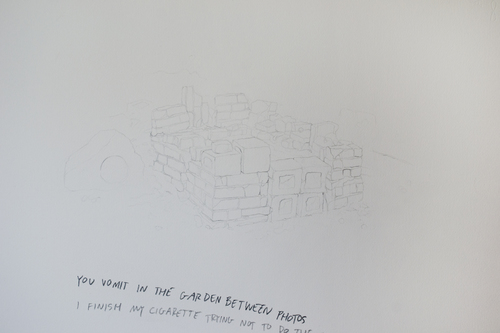 YOU VOMIT IN THE GARDEN BETWEEN PHOTOS
I FINISH MY CIGARETTE TRYING NOT TO DO THE